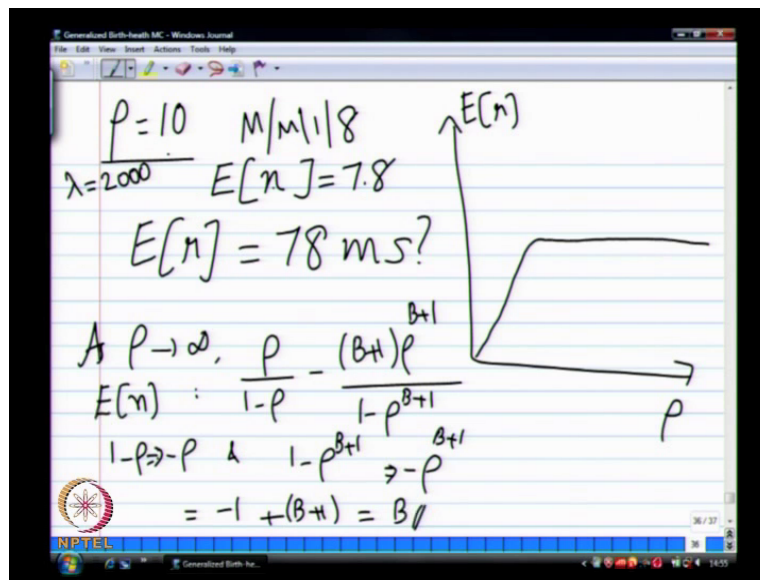 Generalized Birth-heath MC - Windows Journal
File Edit View Insert Actions Tools Help
ρ = 10 M/M/1/8
λ = 2000 E[n] = 7.8
E[r] = 78 ms?
E[n]
ρ
A ρ → ∞, ρ/(1-ρ) - (B+1)ρ^(B+1)/(1-ρ^(B+1))
E[n] :
1-ρ ⇒ -ρ & 1-ρ^(B+1) ⇒ -ρ^(B+1)
= -1 + (B+1) = B
NPTEL
36 / 37
36
Generalized Birth-he...
14:55